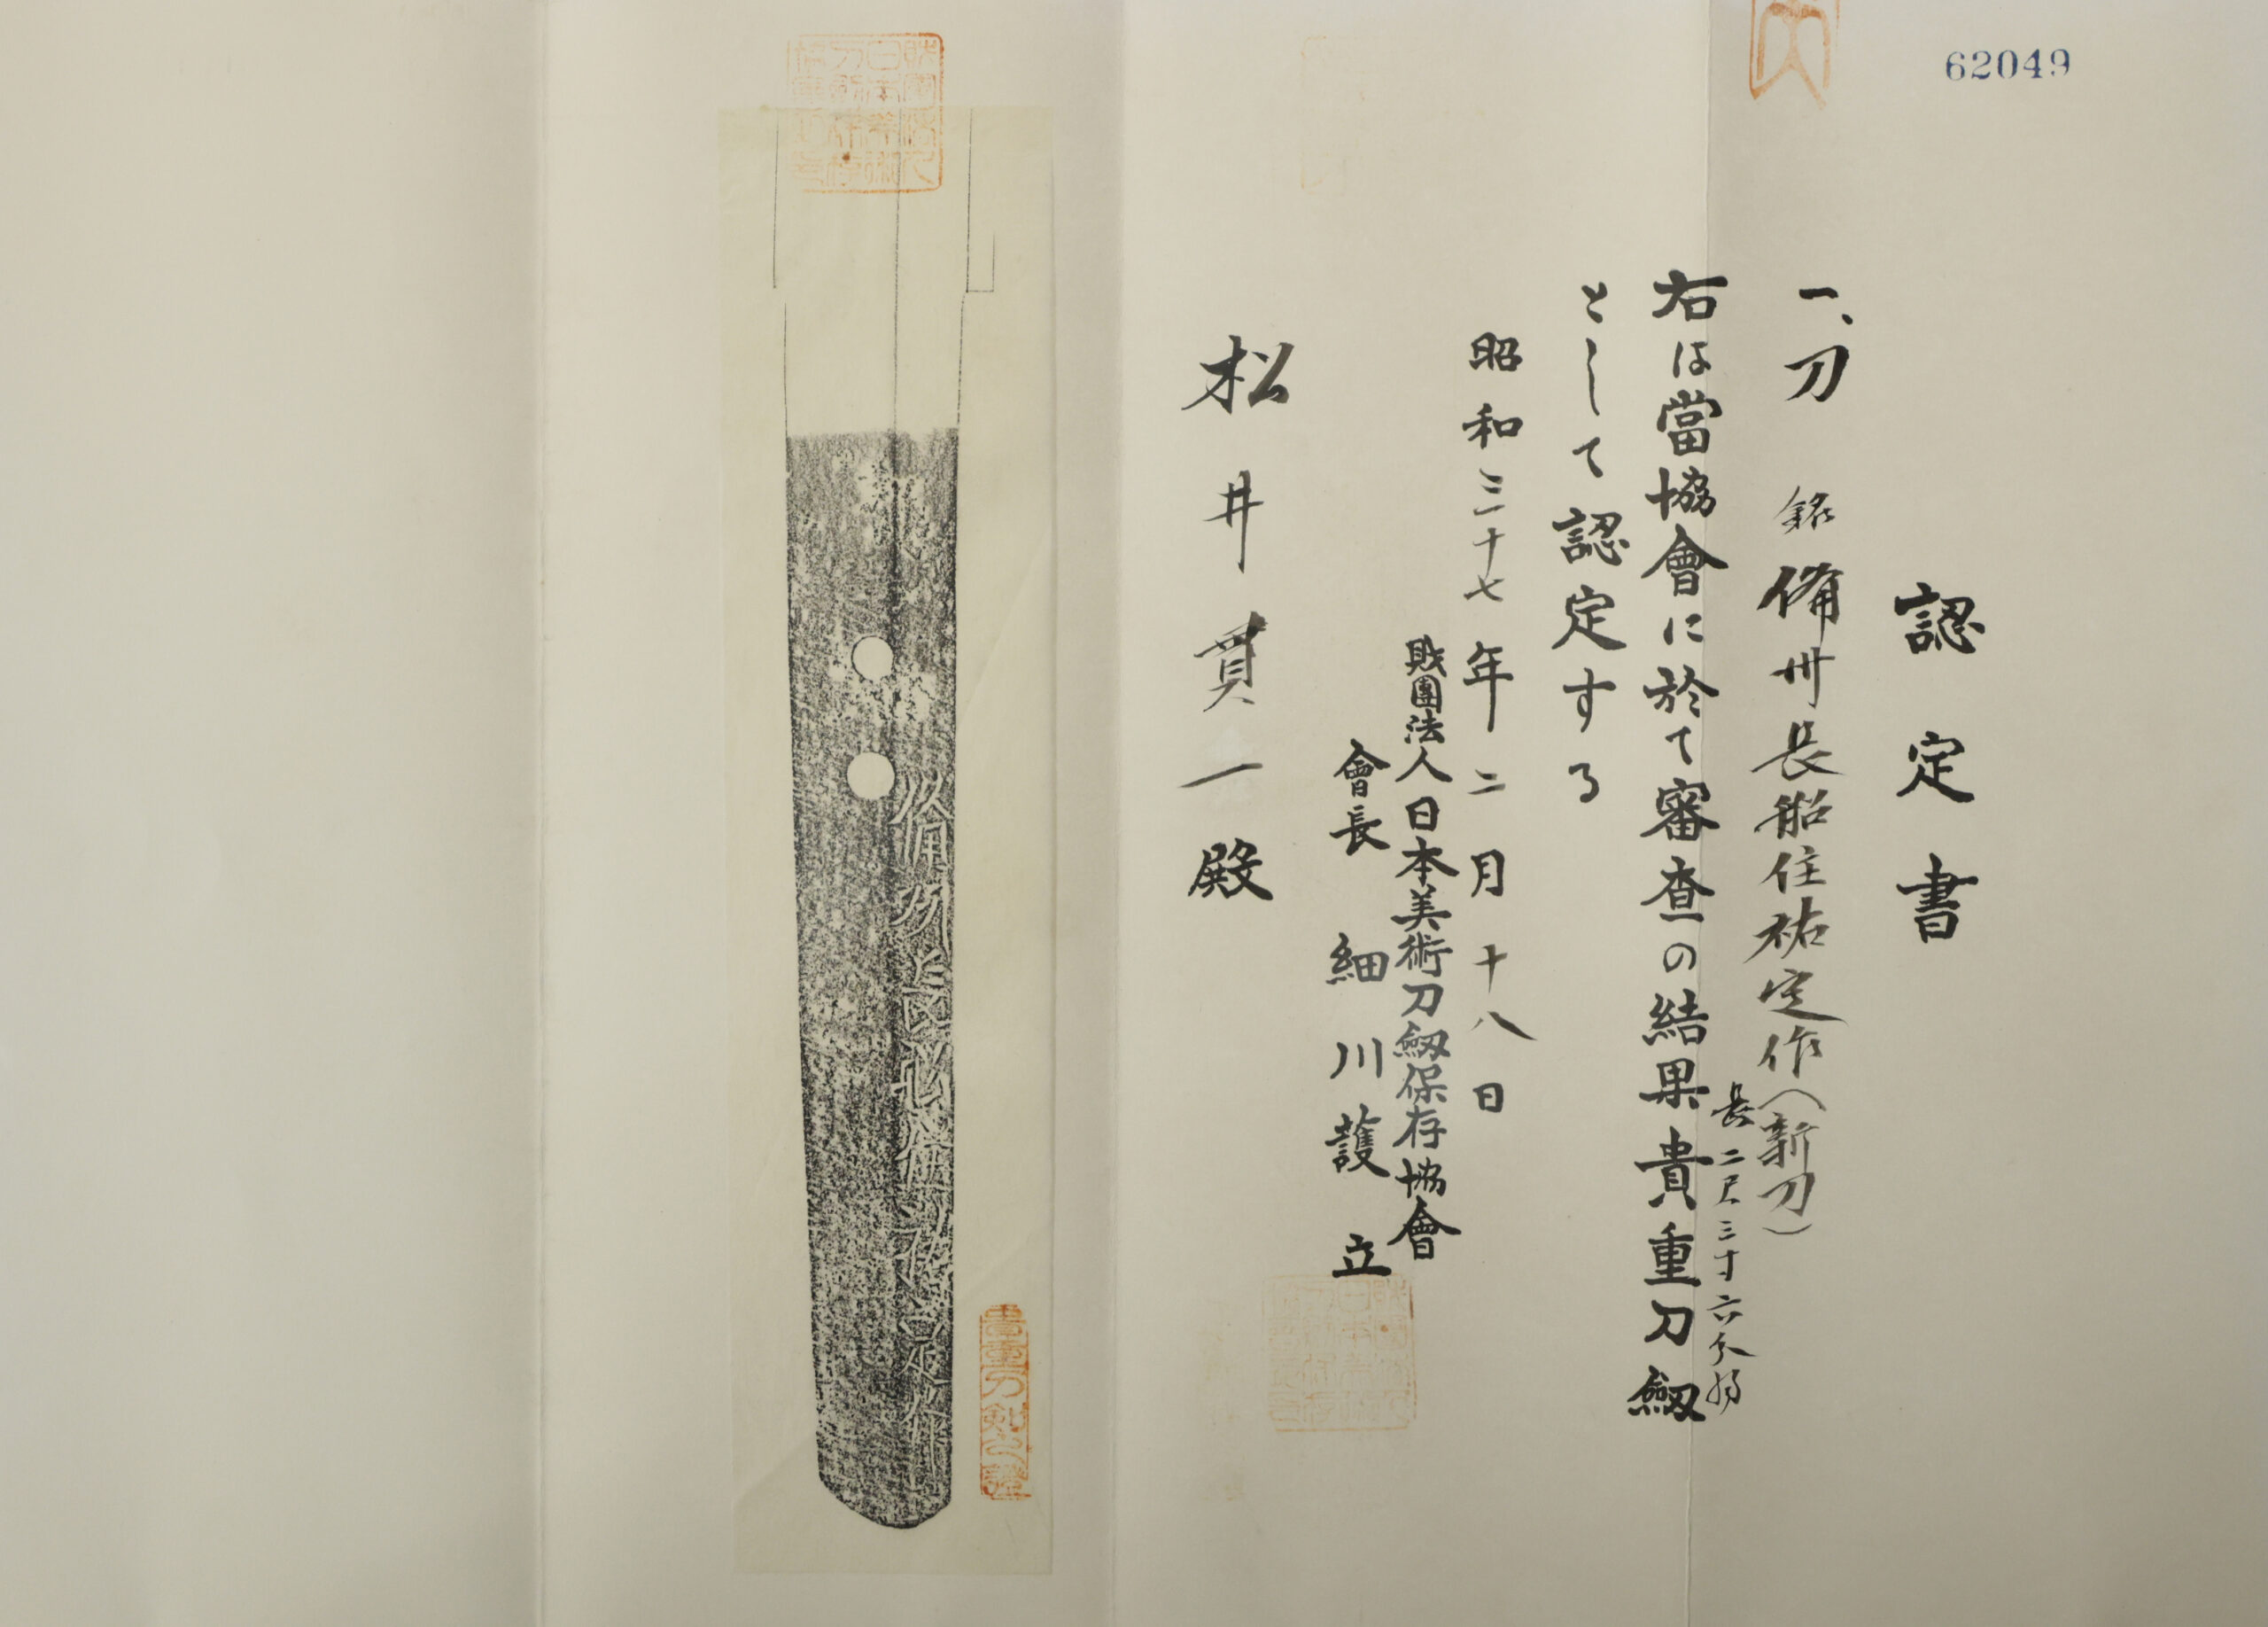 62049
認定書
一、刀 銘 備州長船住祐定作(新刀)
長二尺三寸六分弱
右は當協會に於て審査の結果貴重刀劔
として認定する
昭和三十七年二月十八日
財團法人日本美術刀劔保存協會
會長 細川護立
松井貫一殿
備州長船住祐定作